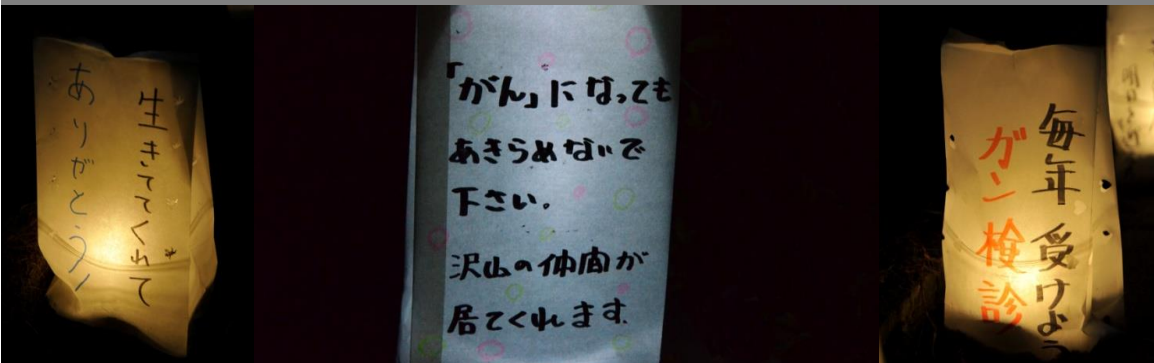 生きててくれて
ありがとう!
「がん」になっても
あきらめないで
下さい。
沢山の仲間が
居てくれます。
毎年 受けよう
ガン検診